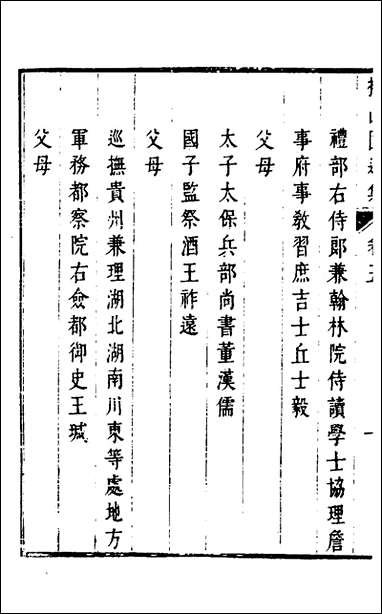 禮部右侍郎兼翰林院侍讀學士協理詹
事府事敎習庶吉士丘士毅
父母
太子太保兵部尚書董漢儒
國子監祭酒王祚遠
父母
巡撫貴州兼理湖北湖南川東等處地方
軍務都察院右僉都御史王瑊
父母